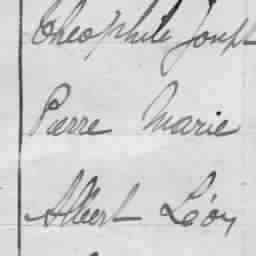 Théophile Joseph
Pierre Marie
Albert Léon